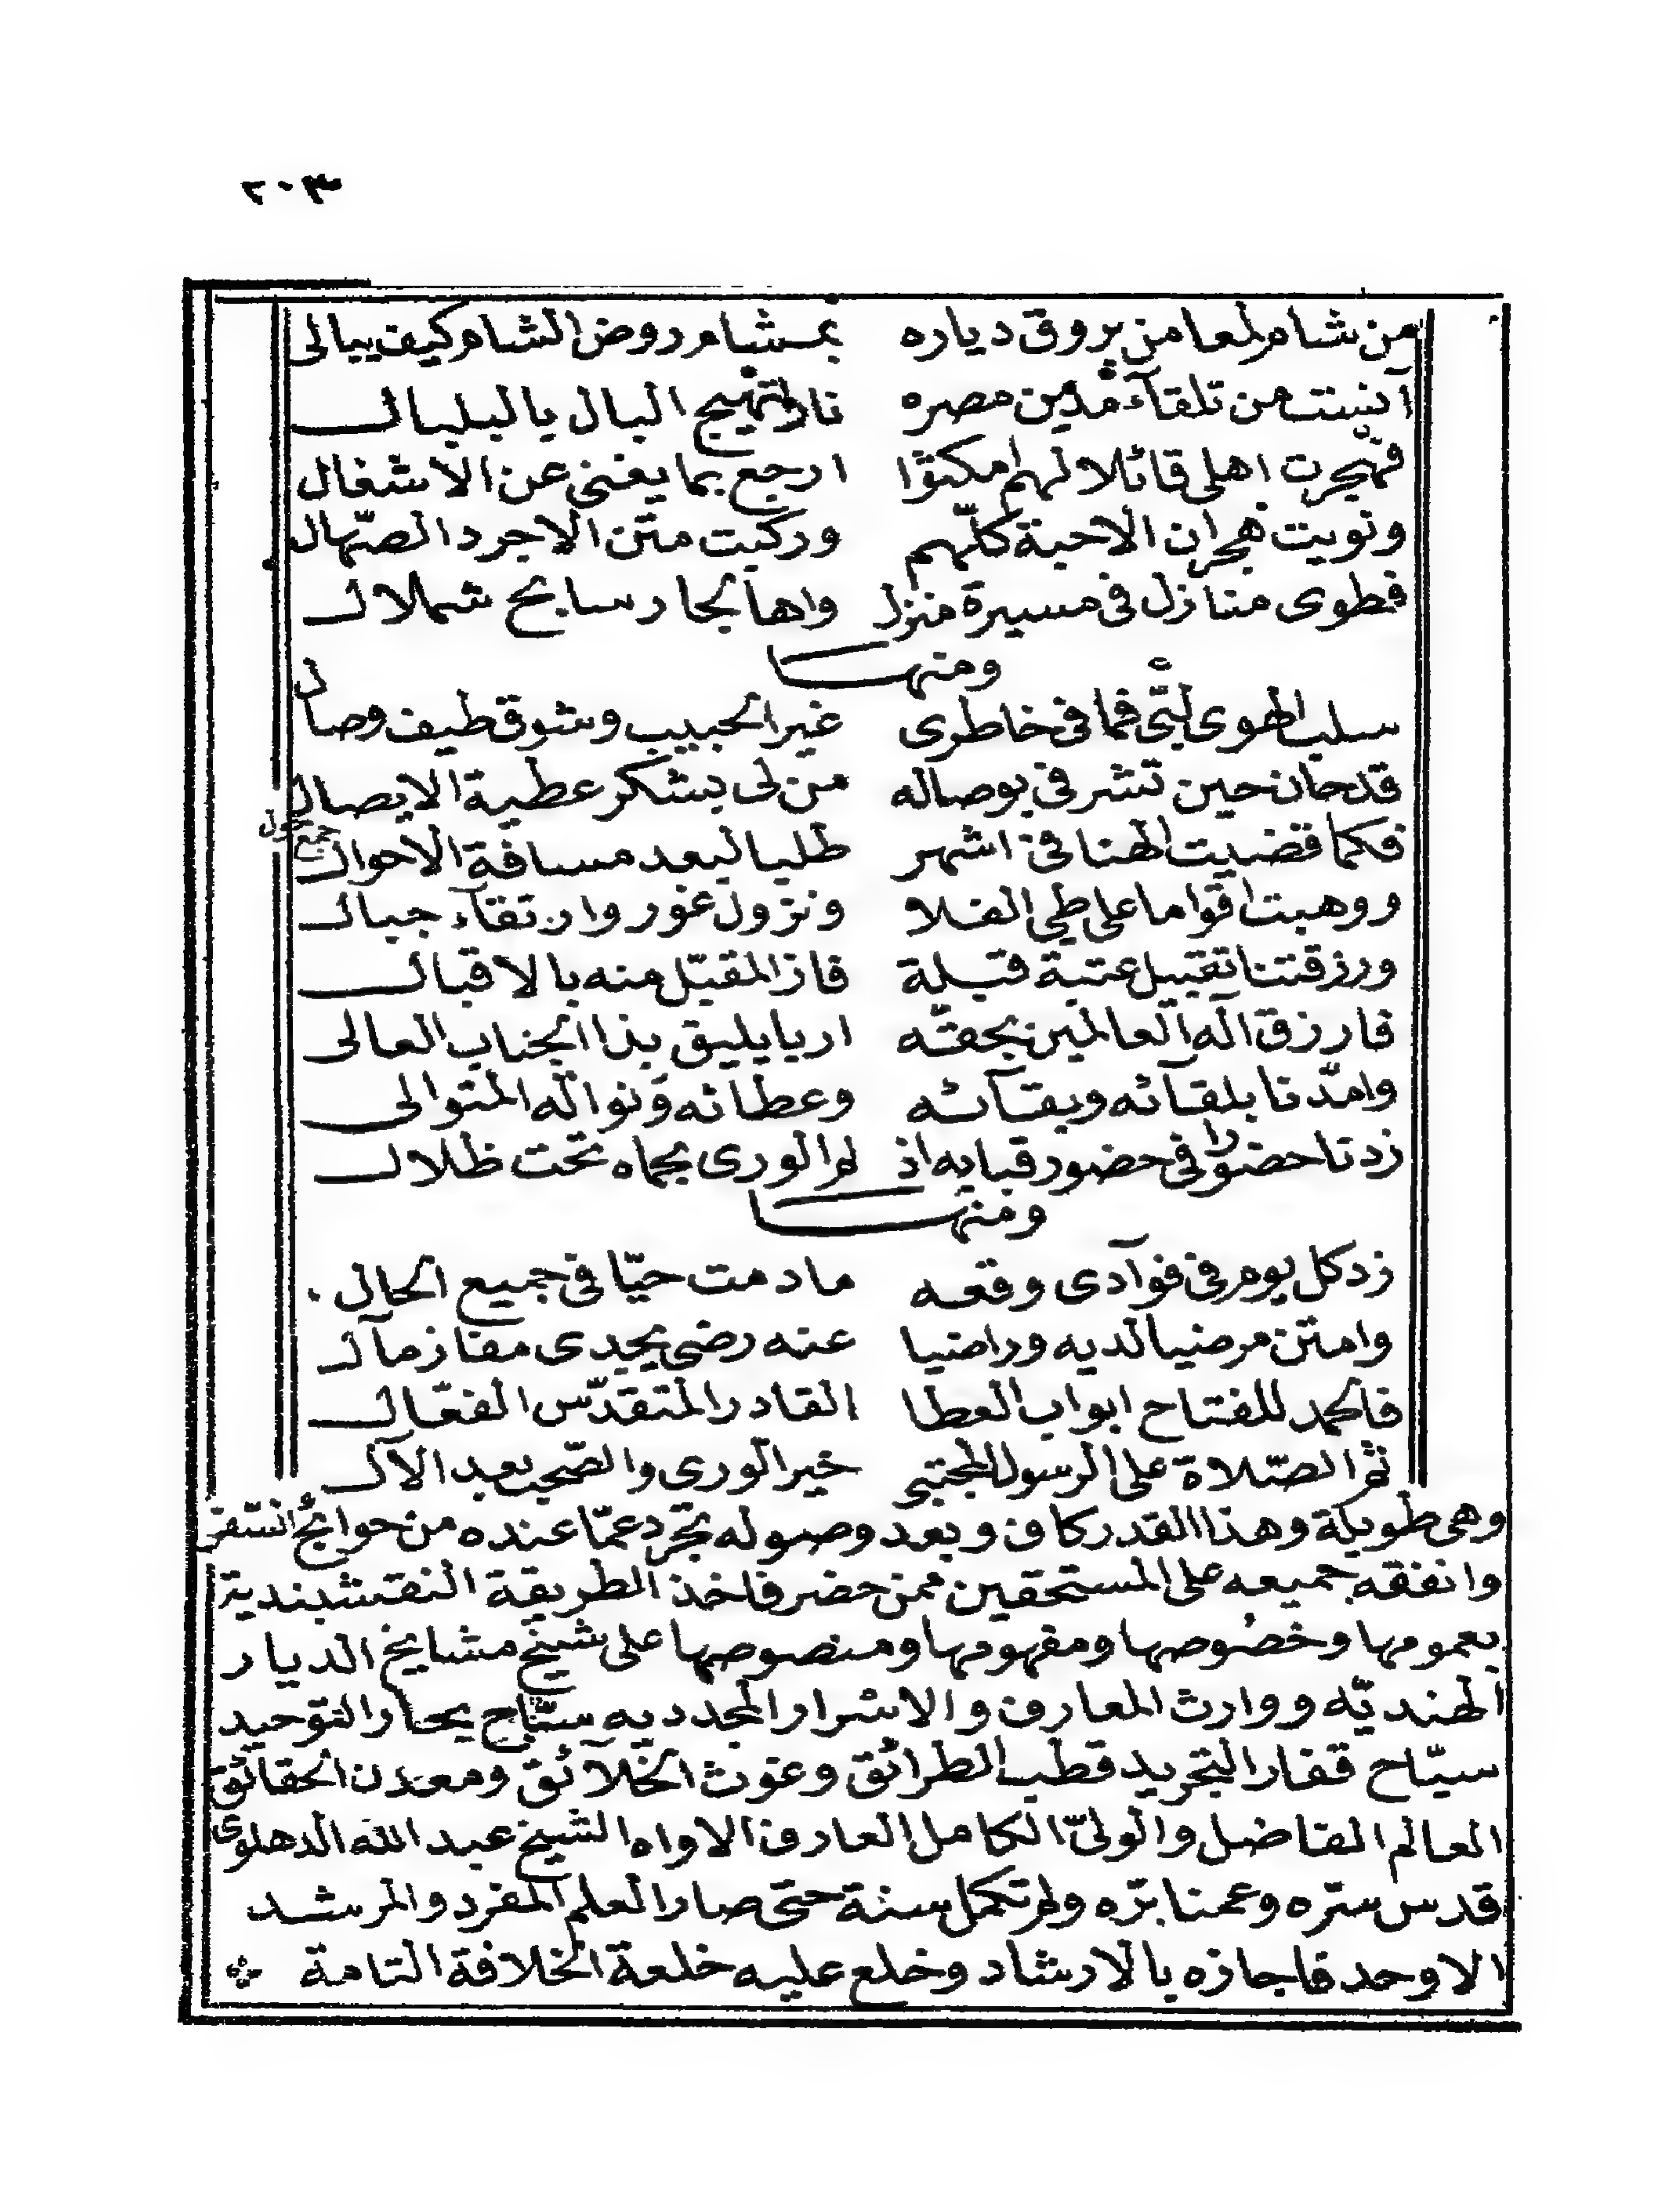 ٢٠٣
من شام لمعا من بروق دياره بمشام روض الشام كيف يبالى
آنست من تلقآء مدين مصره نارا تهيج البال يالبلبال
فهجرت اهلى قائلا لهم امكثوا ارجع بما يغنى عن الاشغال
ونويت هجران الاحبة كلّهم وركبت متن الاجرد الصّهال
فطوى منازل فى مسيرة منزل واها لجار سابح شملال
ومنها
سلب الهوى لبّى فما فى خاطرى غير الحبيب وشوق طيف وصال
قد حان حين تشرفى بوصاله من لى بشكر عطية الايصال
فكما قضيت الهنا فى اشهر طلبا لبعد مسافة الاحوال
جمع حول
ووهبت اقواما على طي الفلا ونزول غور وارتقآء جبال
ورزقتنا تقبيل عتبة قبلة فاز المقبّل منه بالاقبال
فارزق اله العالمين بحقّه اربا يليق بذا الجناب العالى
وامدّنا بلقآئه وبقآئه وعطائه ونواله المتوالى
زدنا حضورا فى حضور قبابه اذ لم الورى بحماه تحت ظلال
ومنها
زد كل يوم فى فوآدى وقعه ما دمت حيّا فى جميع الحال
وامتن مرضيا لديه وراضيا عنه رضى يجدى مفاز مآل
فالحمد للفتاح ابواب العطا القادر المتقدّس الفعّال
ثم الصّلاة على الرسول المجتبى خير الورى والصّحب بعد الآل
وهى طويلة وهذا القدر كاف وبعد وصوله تجرد عمّا عنده من حوائج السّفر
وانفقه جميعه على المستحقين ممن حضر فاخذ الطريقة النقشبندية
بعمومها وخصُوصها ومفهومها ومنصوصها على شيخ مشايخ الديار
الهنديّه ووارث المعارف والاسرار المجدديه سبّاح بحار التوحيد
سيّاح قفار التجريد قطب الطرائق وغوث الخلآئق ومعدن الحقائق
العالم الفاضل والولىّ الكامل العارف الاواه الشيخ عبد الله الدهلوى
قدس سرّه وعمنا برّه ولم تكمل سنة حتى صار العلم المفرد والمرشد
الاوحد فاجازه بالارشاد وخلع عليه خلعة الخلافة التامة